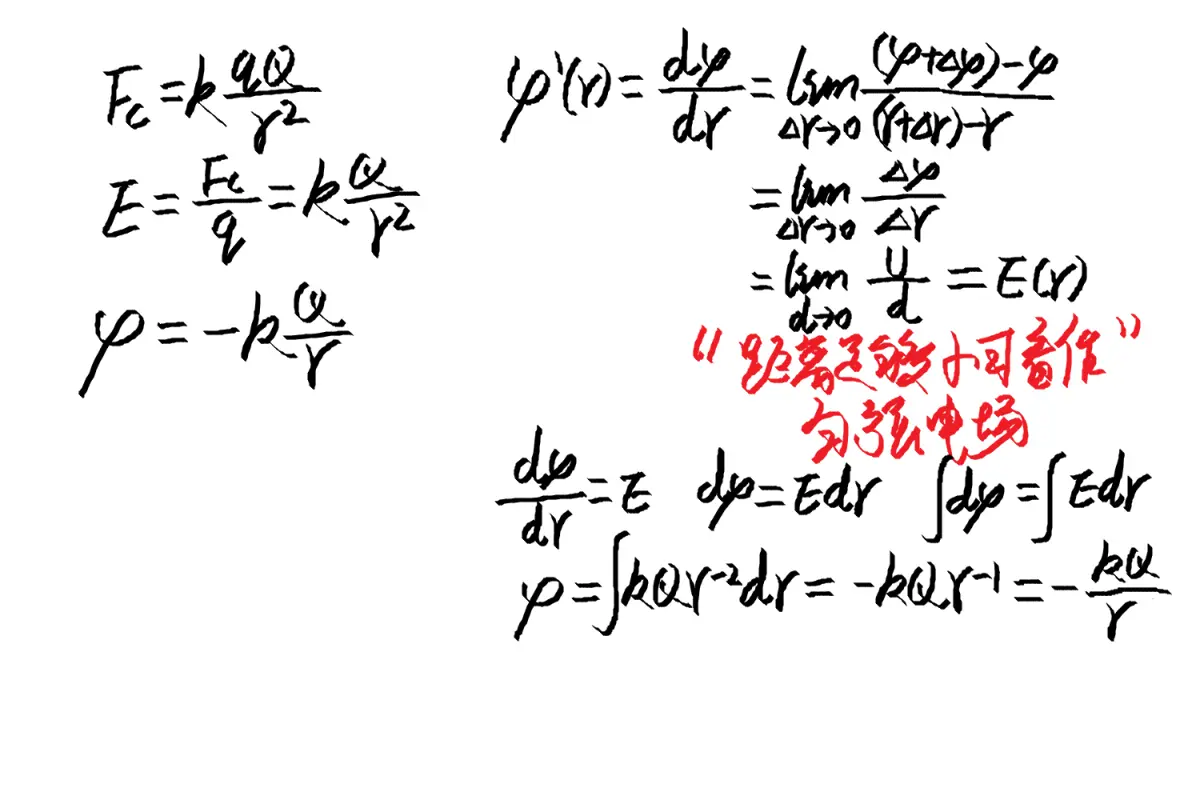 F_c = k qQ/r²
E = F_c/q = k Q/r²
φ = -k Q/r
φ'(r) = dφ/dr = lim Δr→0 (φ+Δφ)-φ/(r+Δr)-r
= lim Δr→0 Δφ/Δr
= lim d→0 U/d = E(r)
“距离足够小可看作”
匀强电场
dφ/dr = E dφ = Edr ∫dφ = ∫Edr
φ = ∫kQr⁻²dr = -kQr⁻¹ = - kQ/r